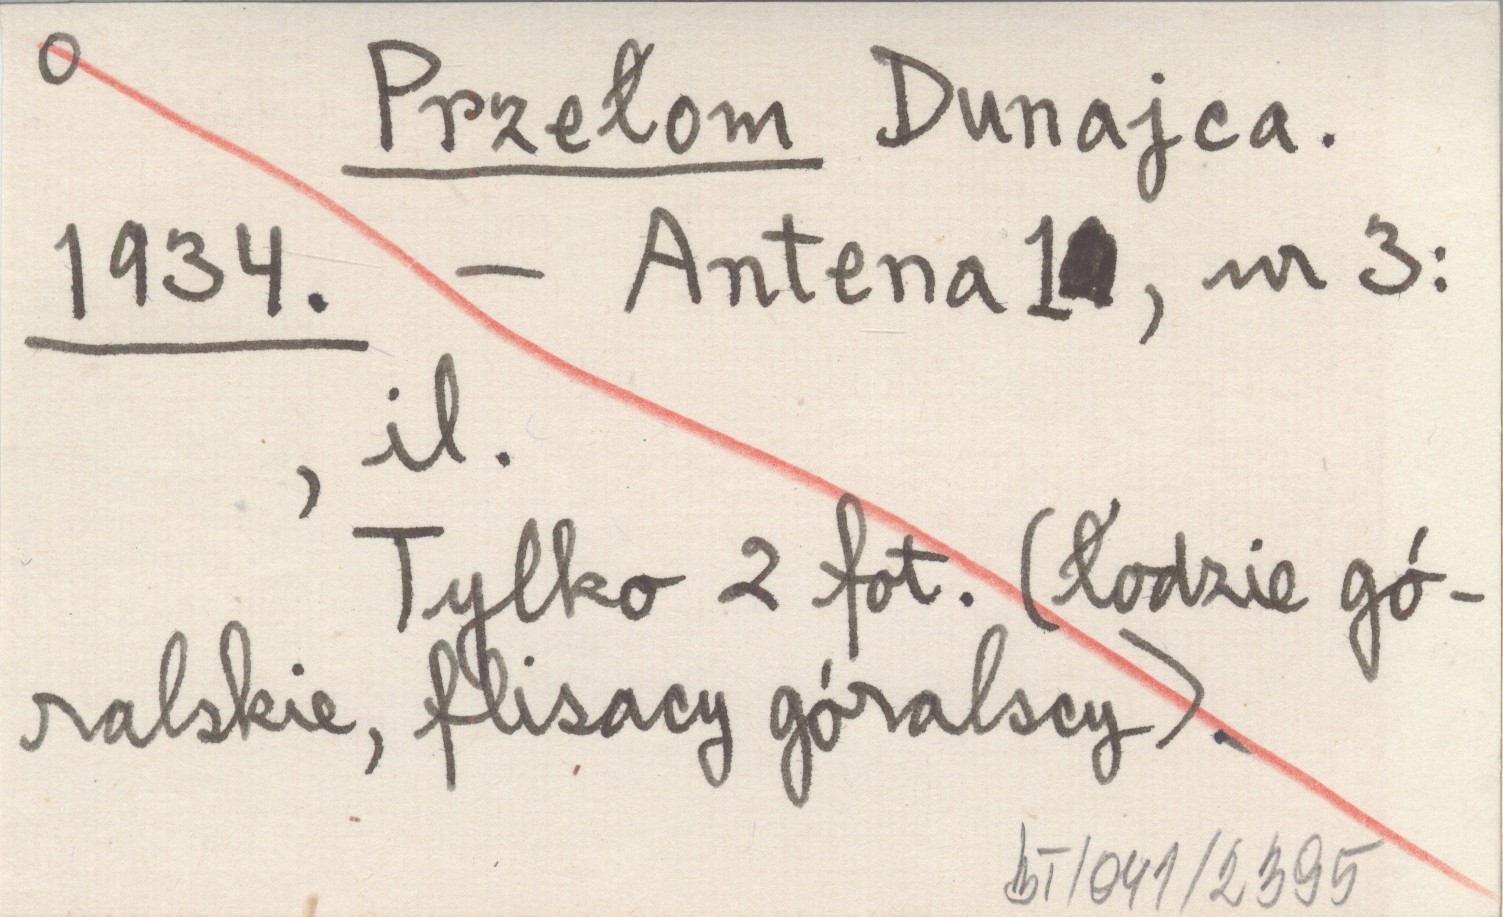 O Przełom Dunajca.
1934. – Antena 1, nr 3:
, il.
Tylko 2 fot. (łodzie gó-
ralskie, flisacy góralscy).
/041/2395